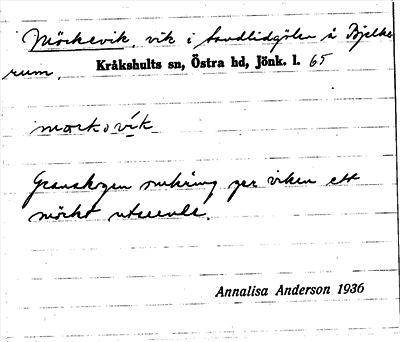 Mörkevik, vik i Sandlidgölen å Bjelke
rum.
Kråkshults sn, Östra hd, Jönk. l. 65
mœrkəvík
Granskogen omkring ger viken ett
mörkt utseende.
Annalisa Anderson 1936